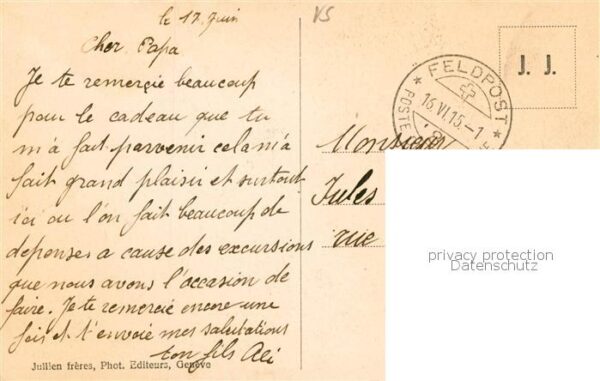 le 17. Juin
Cher Papa
Je te remercie beaucoup
pour le cadeau que tu
m'a fait parvenir cela m'a
fait grand plaisir et surtout
ici ou l'on fait beaucoup de
depenses a cause des excursions
que nous avons l'occasion de
faire. Je te remercie encore une
fois et t'envoie mes salutations
ton fils
Jullien frères, Phot. Editeurs, Genève
VS
J. J.
FELDPOST
16.VI.15.-1
POSTE
Monsieur
Jules
rue
privacy protection
Datenschutz